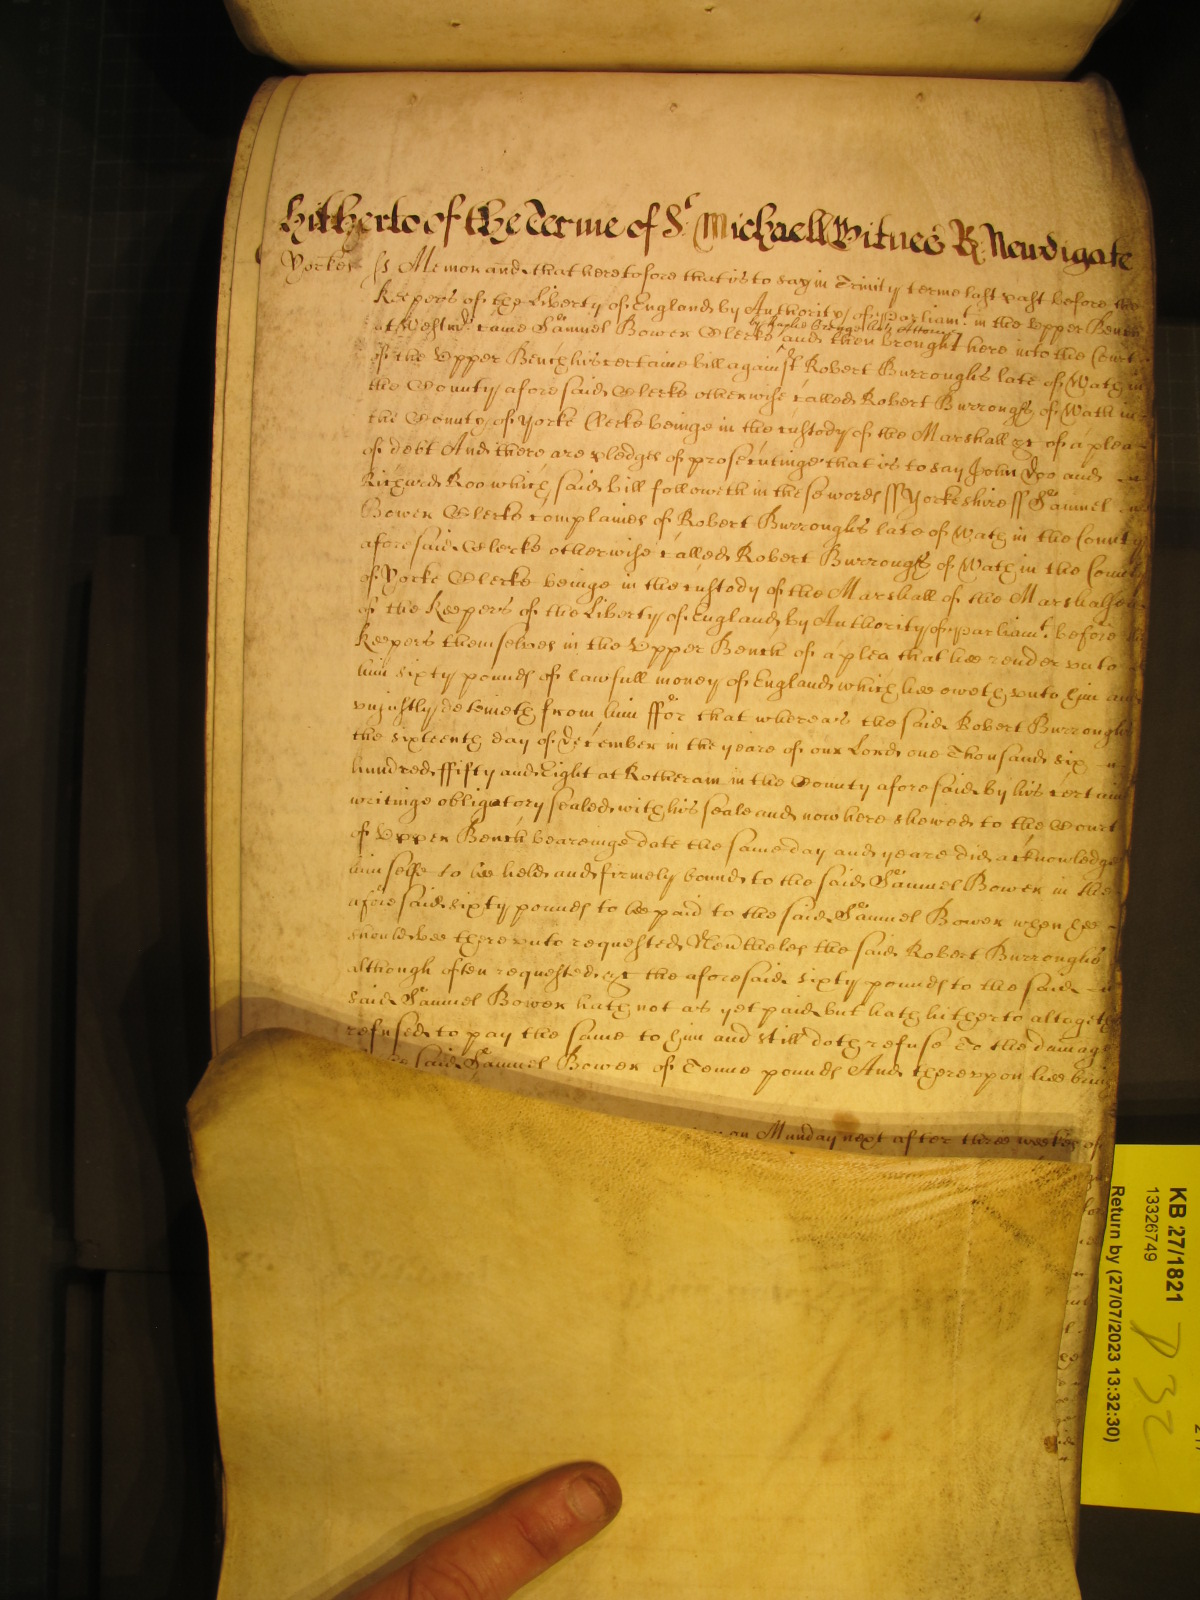 hitherto of the Terme of St Michaell Witnes R Newdigate
Yorkes ss Memorand. that heretofore that is to say in Trinity terme last past before the
Keepers of the Liberty of England by Authority of Parliamt. in the Upper Bench
by Attorney
at Westmr. came Samuel Bower Clerke and then brought here into the Court
of the Upper Bench his certaine bill against Robert Burroughs late of Wath in
the County aforesaid Clerke otherwise called Robert Burroughs of Wath in
the County of Yorke Clerke beinge in the custody of the Marshall &c of a plea
of debt And there are pledges of prosecutinge that is to say John Doo and
Richard Roo which said bill followeth in these words ss Yorkeshire ss Samuel
Bower Clerke complaines of Robert Burroughs late of Wath in the County
aforesaid Clerke otherwise called Robert Burroughs of Wath in the County
of Yorke Clerke beinge in the custody of the Marshall of the Marshalsea
of the Keepers of the Liberty of England by Authority of Parliamt. before the
Keepers themselves in the Upper Bench of a plea that hee render vnto
him sixty pounds of lawfull money of England which hee oweth vnto him and
vniustly deteineth from him ffor that whereas the said Robert Burroughs
the sixteenth day of December in the yeare of our Lord one Thousand six
hundred ffifty and Eight at Rotheram in the County aforesaid by his certain
writinge obligatory sealed with his seale and now here shewed to the Court
of Upper Bench beareinge date the same day and yeare did acknowledge
himselfe to be held and firmely bound to the said Samuel Bower in the
aforesaid sixty pounds to be paid to the said Samuel Bower when hee
should bee therevnto requested Nevertheles the said Robert Burroughs
although often requested &c the aforesaid sixty pounds to the said
said Samuel Bower hath not as yet paid but hath hitherto altogether
refused to pay the same to him and still doth refuse To the damage
said Samuel Bower of Tenne pounds And therevpon hee brings
on Munday next after three weekes of
KB 27/1821
13326749
Return by (27/07/2023 13:32:30)
P 32